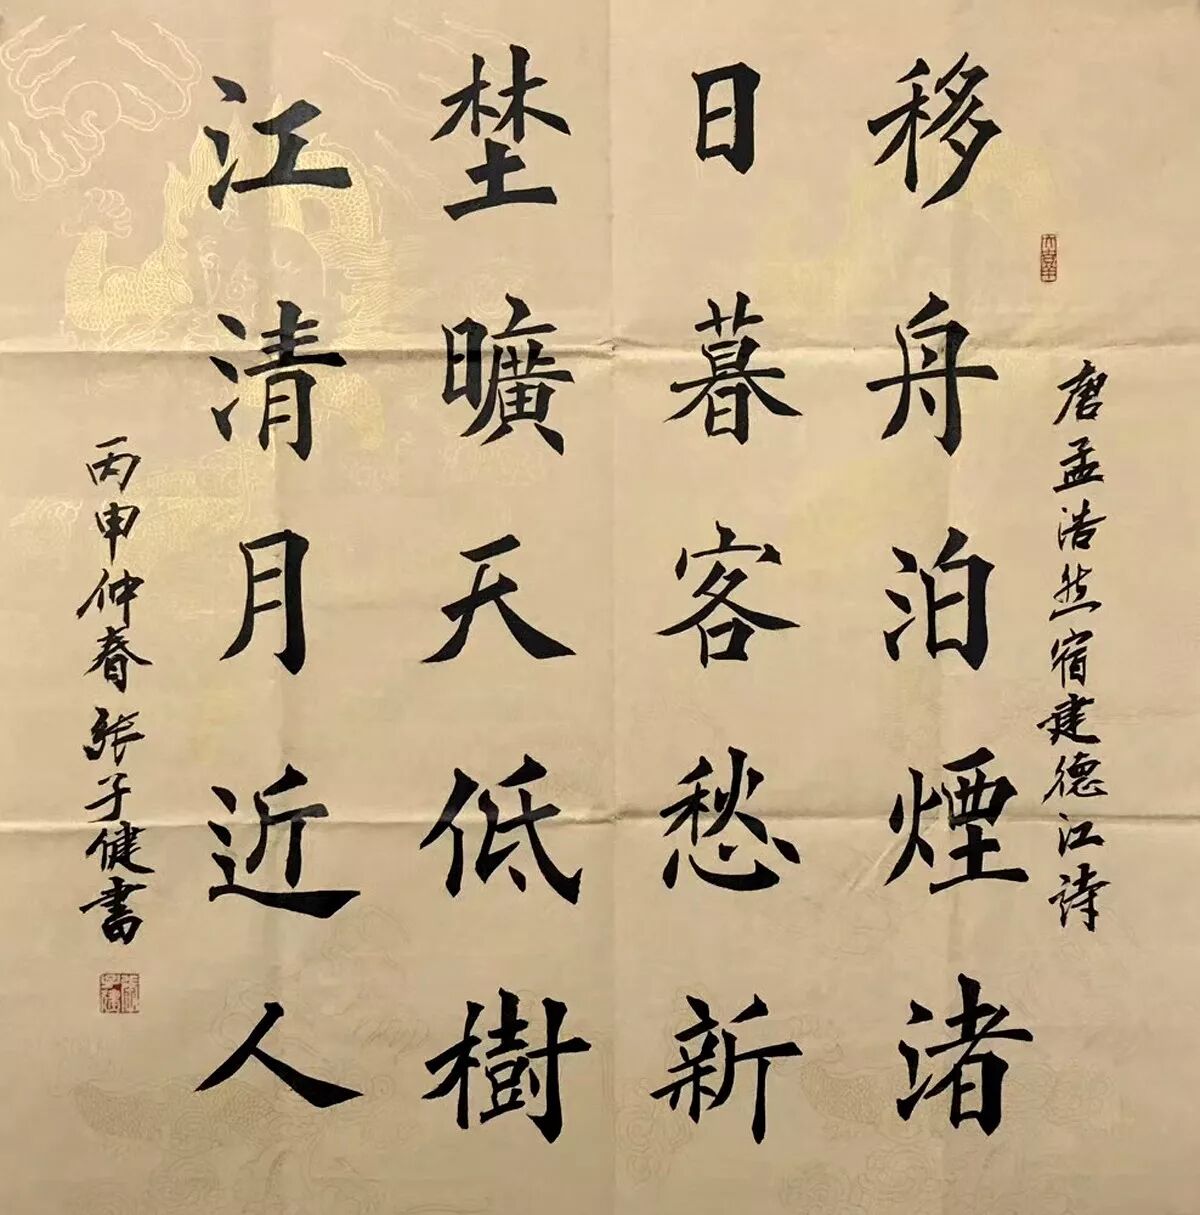 大吉羊
唐孟浩然宿建德江詩
移舟泊煙渚
日暮客愁新
埜曠天低樹
江清月近人
丙申仲春張子健書